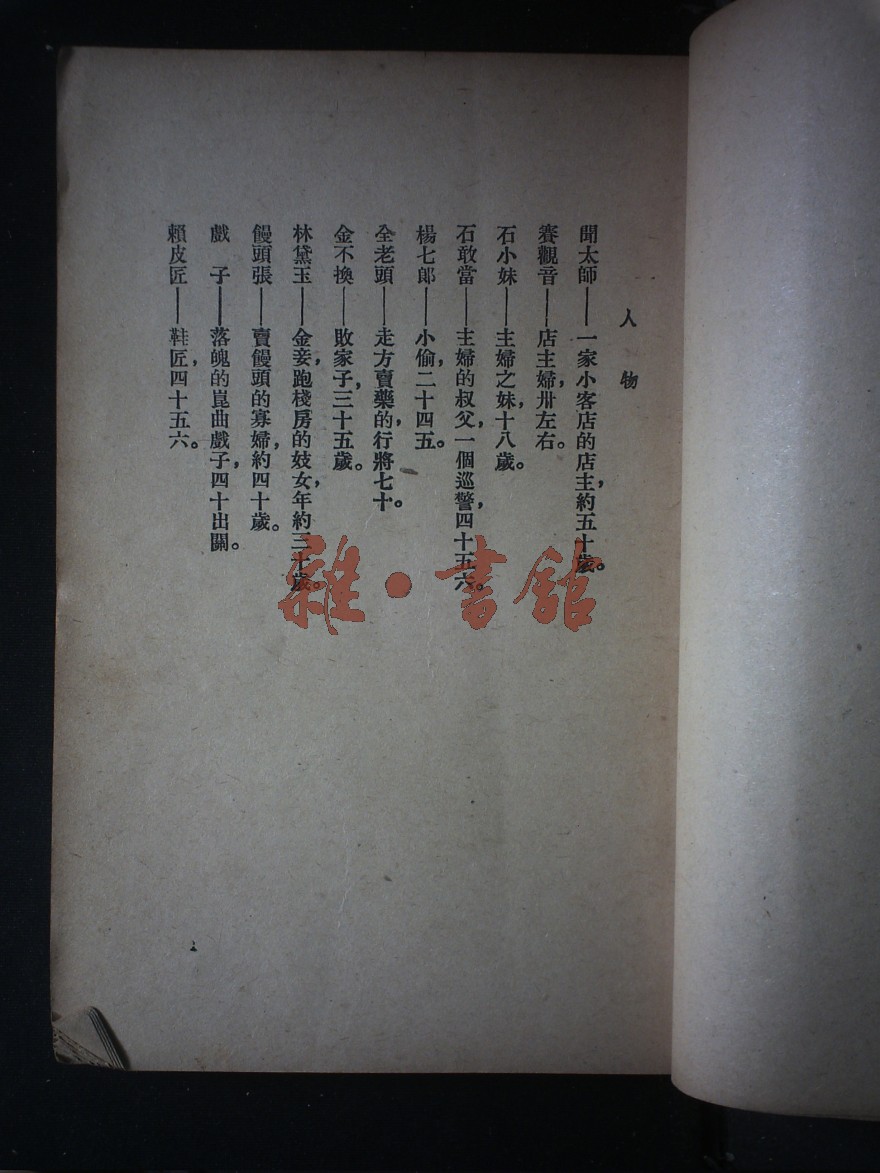 人物
聞太師——一家小客店的店主，約五十歲。
賽觀音——店主婦，卅左右。
石小妹——主婦之妹，十八歲。
石敢當——主婦的叔父，一個巡警，四十五六。
楊七郎——小偷，二十四五。
全老頭——走方賣藥的，行將七十。
金不換——敗家子，三十五歲。
林黛玉——金妾，跑棧房的妓女，年約三十歲。
饅頭張——賣饅頭的寡婦，約四十歲。
戲子——落魄的崑曲戲子，四十出關。
賴皮匠——鞋匠，四十五六。
雜·書館